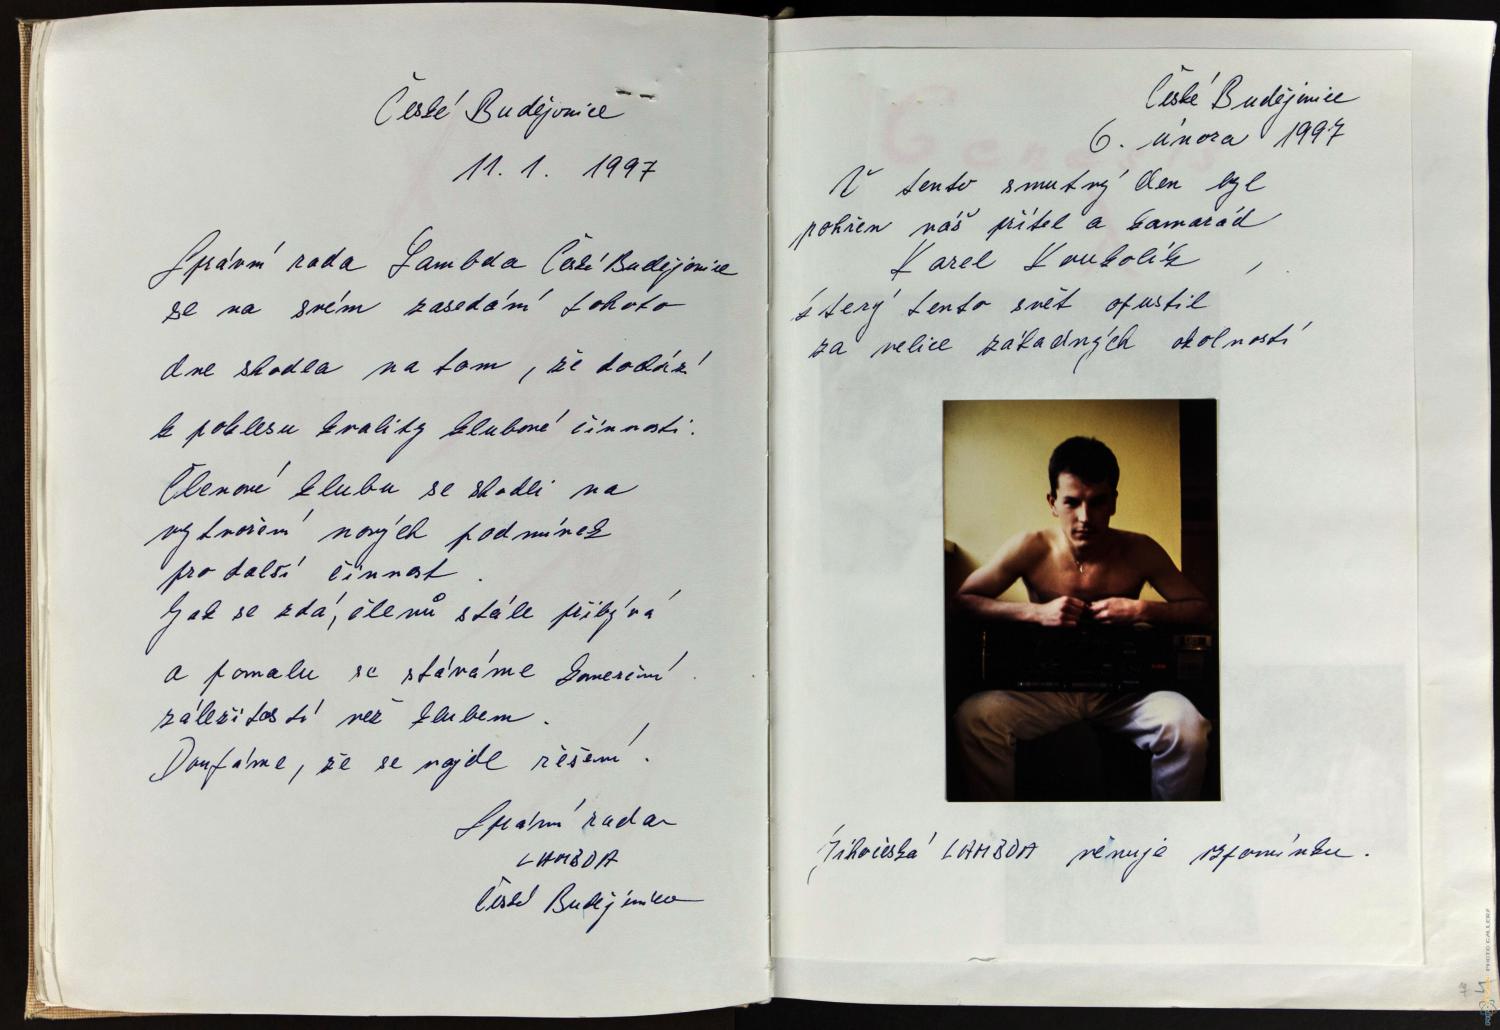 České Budějovice
11. 1. 1997
Správní rada Lambda České Budějovice
se na svém zasedání tohoto
dne shodla na tom, že dochází
k poklesu kvality klubové činnosti.
Členové klubu se shodli na
vytvoření nových podmínek
pro další činnost.
Jak se zdá, členů stále přibývá
a pomalu se stáváme komerční
záležitostí než klubem.
Doufáme, že se najde řešení.
Správní rada
LAMBDA
České Budějovice
České Budějovice
6. února 1997
V tento smutný den byl
pohřben náš přítel a kamarád
Karel Koukolík,
který tento svět opustil
za velice záhadných okolností
Jihočeská LAMBDA věnuje vzpomínku.
Genesis